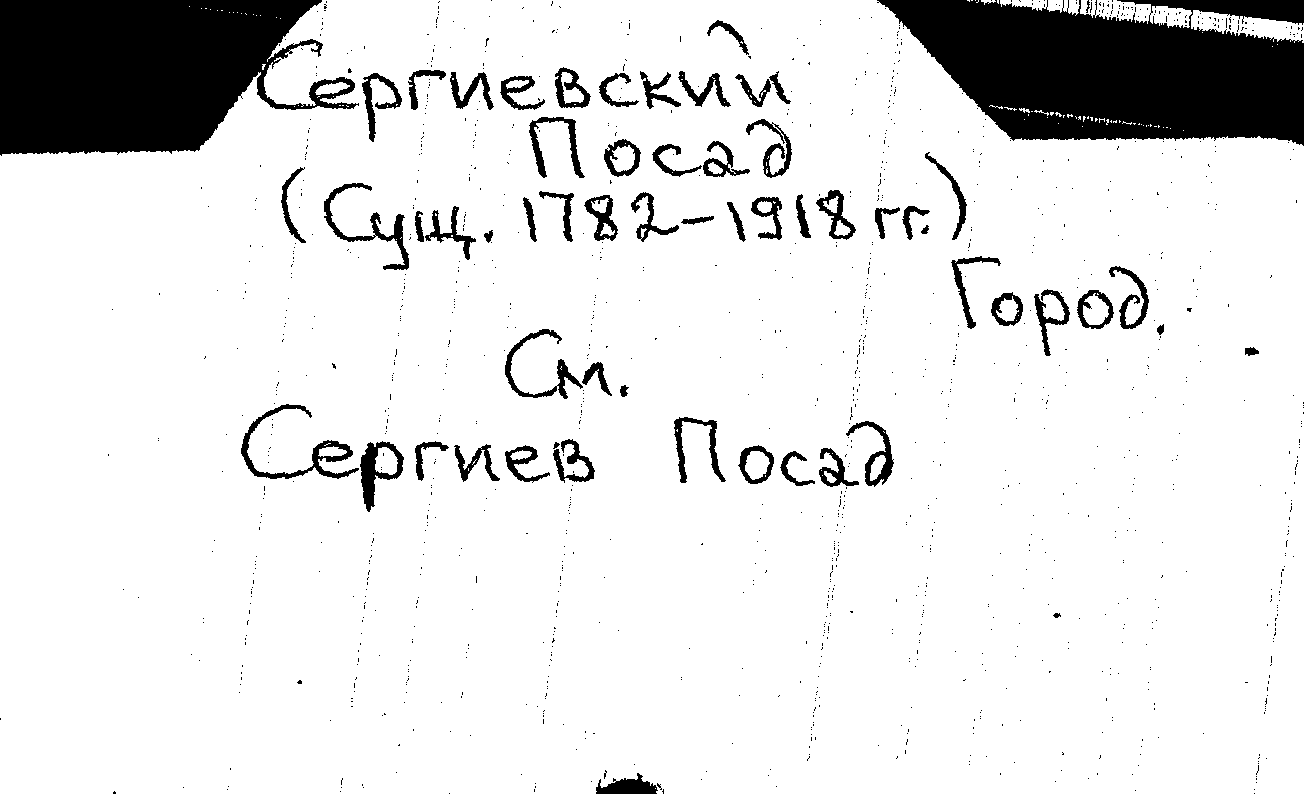 Сергиевский
Посад
(Сущ. 1782-1918 гг.)
Город.
См.
Сергиев Посад